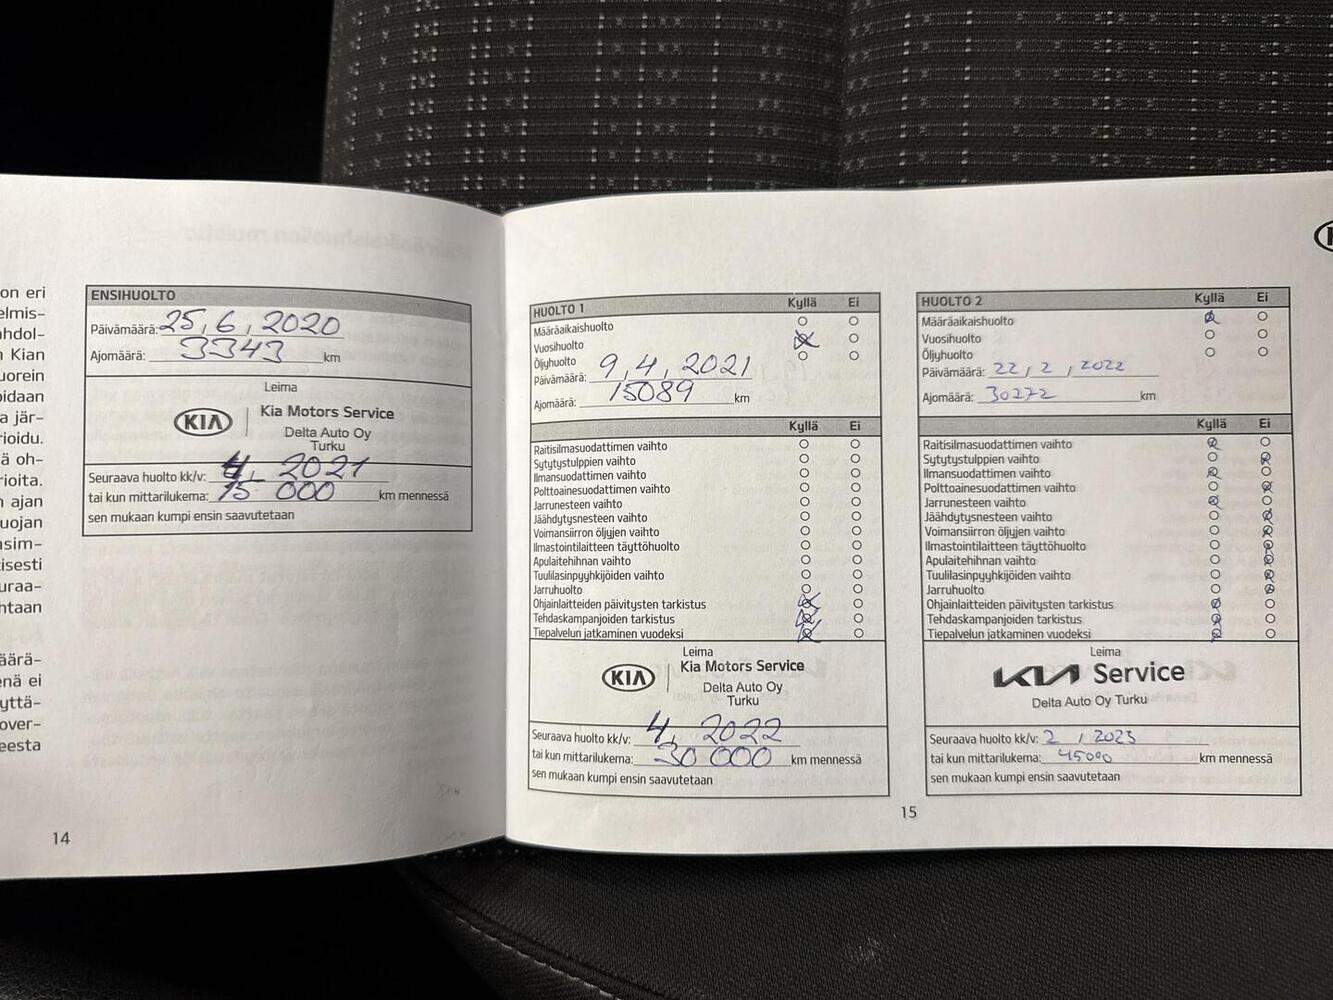 on eri
elmis-
ahdol-
n Kian
uorein
oidaan
a jär-
rioidu.
ä oh-
rioita.
n ajan
uojan
nsim-
tisesti
uraa-
htaan
äärä-
enä ei
yttä-
over-
eesta
14
ENSIHUOLTO
Päivämäärä: 25, 6, 2020
Ajomäärä: 3343 km
Leima
KIA Kia Motors Service
Delta Auto Oy
Turku
Seuraava huolto kk/v: 4, 2021
tai kun mittarilukema: 15 000 km mennessä
sen mukaan kumpi ensin saavutetaan
HUOLTO 1 Kyllä Ei
Määräaikaishuolto
Vuosihuolto
Öljyhuolto
Päivämäärä: 9, 4, 2021
Ajomäärä: 15089 km
Kyllä Ei
Raitisilmasuodattimen vaihto
Sytytystulppien vaihto
Ilmansuodattimen vaihto
Polttoainesuodattimen vaihto
Jarrunesteen vaihto
Jäähdytysnesteen vaihto
Voimansiirron öljyjen vaihto
Ilmastointilaitteen täyttöhuolto
Apulaitehihnan vaihto
Tuulilasinpyyhkijöiden vaihto
Jarruhuolto
Ohjainlaitteiden päivitysten tarkistus
Tehdaskampanjoiden tarkistus
Tiepalvelun jatkaminen vuodeksi
Leima
KIA Kia Motors Service
Delta Auto Oy
Turku
Seuraava huolto kk/v: 4, 2022
tai kun mittarilukema: 30 000 km mennessä
sen mukaan kumpi ensin saavutetaan
HUOLTO 2 Kyllä Ei
Määräaikaishuolto
Vuosihuolto
Öljyhuolto
Päivämäärä: 22 / 2 / 2022
Ajomäärä: 30272 km
Kyllä Ei
Raitisilmasuodattimen vaihto
Sytytystulppien vaihto
Ilmansuodattimen vaihto
Polttoainesuodattimen vaihto
Jarrunesteen vaihto
Jäähdytysnesteen vaihto
Voimansiirron öljyjen vaihto
Ilmastointilaitteen täyttöhuolto
Apulaitehihnan vaihto
Tuulilasinpyyhkijöiden vaihto
Jarruhuolto
Ohjainlaitteiden päivitysten tarkistus
Tehdaskampanjoiden tarkistus
Tiepalvelun jatkaminen vuodeksi
Leima
KIA Service
Delta Auto Oy Turku
Seuraava huolto kk/v: 2 / 2023
tai kun mittarilukema: 45000 km mennessä
sen mukaan kumpi ensin saavutetaan
15